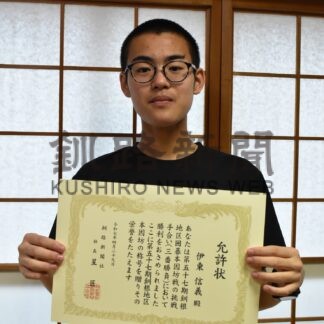 允許状
伊東 信義 殿
あなたは第五十七期釧根
地区囲碁本因坊戦の挑戦
手合い三番勝負において
勝利をおさめられました
ここに第五十七期釧根地区
本因坊の称号を贈りその
栄誉をたたえます
釧路新聞社
社長 星
釧路新聞
KUSHIRO NEWS WEB